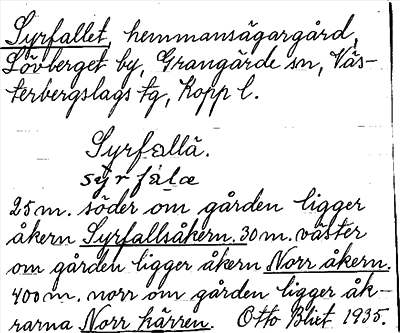 Syrfallet, hemmansägargård,
Lövberget by, Grangärde sn, Väs-
terbergslags tg, Kopp l.
Syrfallä.
syrfalæ
25 m. söder om gården ligger
åkern Syrfallsåkern. 30 m. väster
om gården ligger åkern Norr åkern.
400 m. norr om gården ligger åk-
rarna Norr kärren. Otto Blixt 1935.